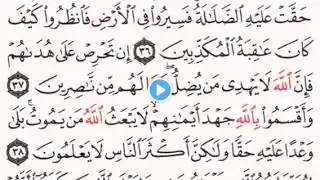 حَقَّتْ عَلَيْهِ ٱلضَّلَٰلَةُ فَسِيرُوا۟ فِى ٱلْأَرْضِ فَٱنظُرُوا۟ كَيْفَ
كَانَ عَٰقِبَةُ ٱلْمُكَذِّبِينَ ٣٦ إِن تَحْرِصْ عَلَىٰ هُدَىٰهُمْ
فَإِنَّ ٱللَّهَ لَا يَهْدِى مَن يُضِلُّ ۖ وَمَا لَهُم مِّن نَّٰصِرِينَ ٣٧
وَأَقْسَمُوا۟ بِٱللَّهِ جَهْدَ أَيْمَٰنِهِمْ ۙ لَا يَبْعَثُ ٱللَّهُ مَن يَمُوتُ ۚ بَلَىٰ
وَعْدًا عَلَيْهِ حَقًّا وَلَٰكِنَّ أَكْثَرَ ٱلنَّاسِ لَا يَعْلَمُونَ ٣٨